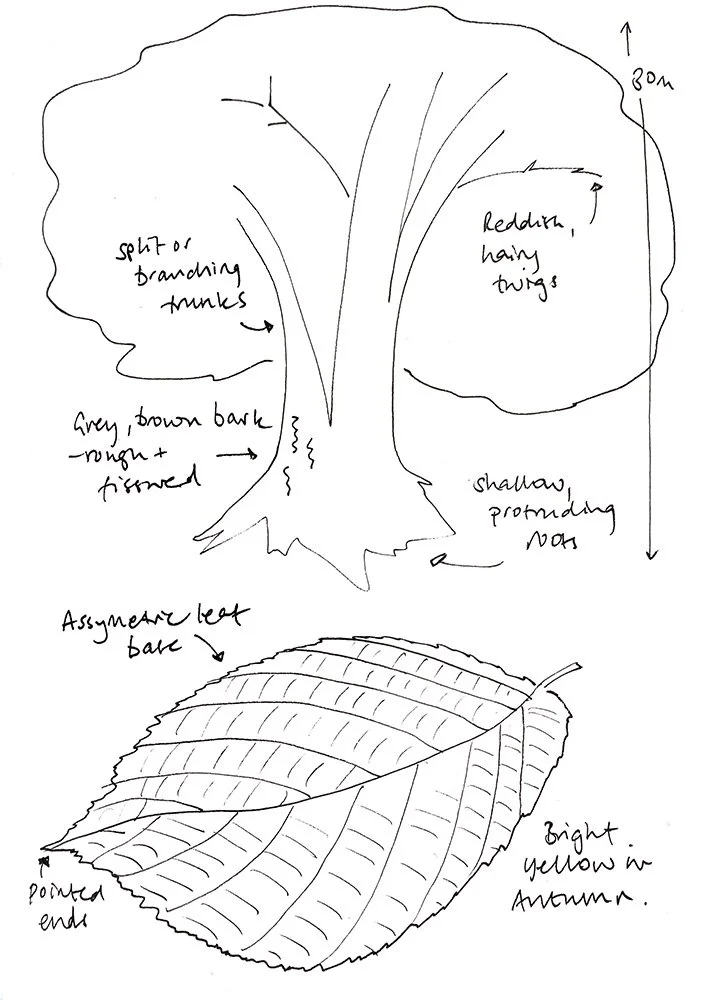 30m
Reddish,
hairy
twigs
split or
branching
trunks
Grey, brown bark
-rough +
fissured
shallow,
protruding
roots
Assymetric leaf
base
Bright
yellow in
Autumn.
pointed
ends